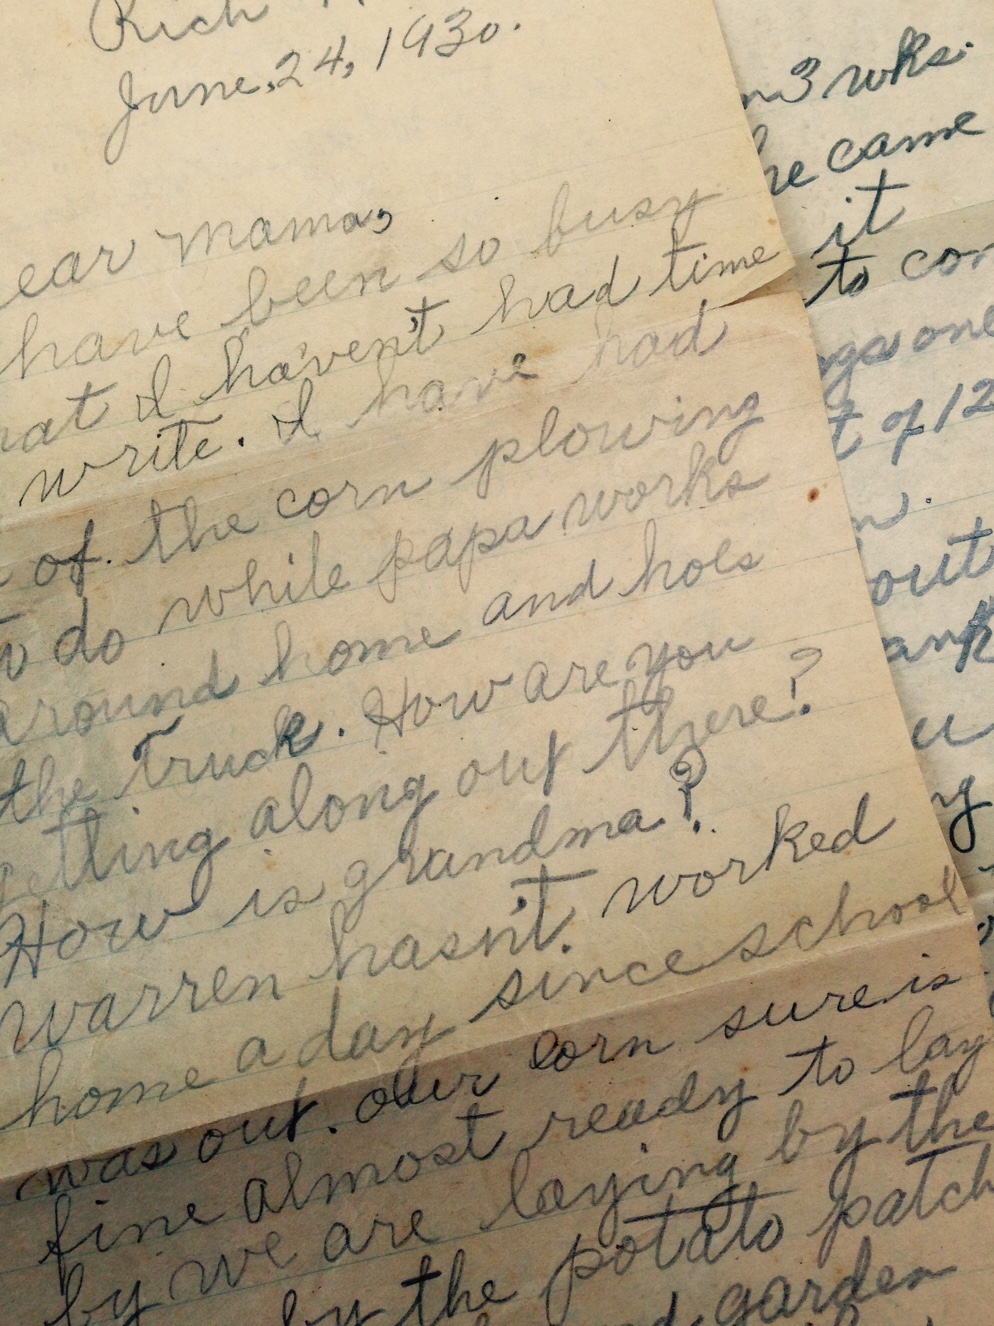 Rich
June, 24, 1930.
ear Mama,
have been so busy
at I haven't had time
write. I have had
of the corn plowing
to do while papa works
around home and hoes
the truck. How are you
getting along out there?
How is grandma?
Warren hasn't worked
home a day since school
was out. Our corn sure is
fine almost ready to lay
by we are laying by the
by the potato patch
garden
n 3 wks.
he came
it
to con
ngs one
t of 12
n.
out
ank
u
y